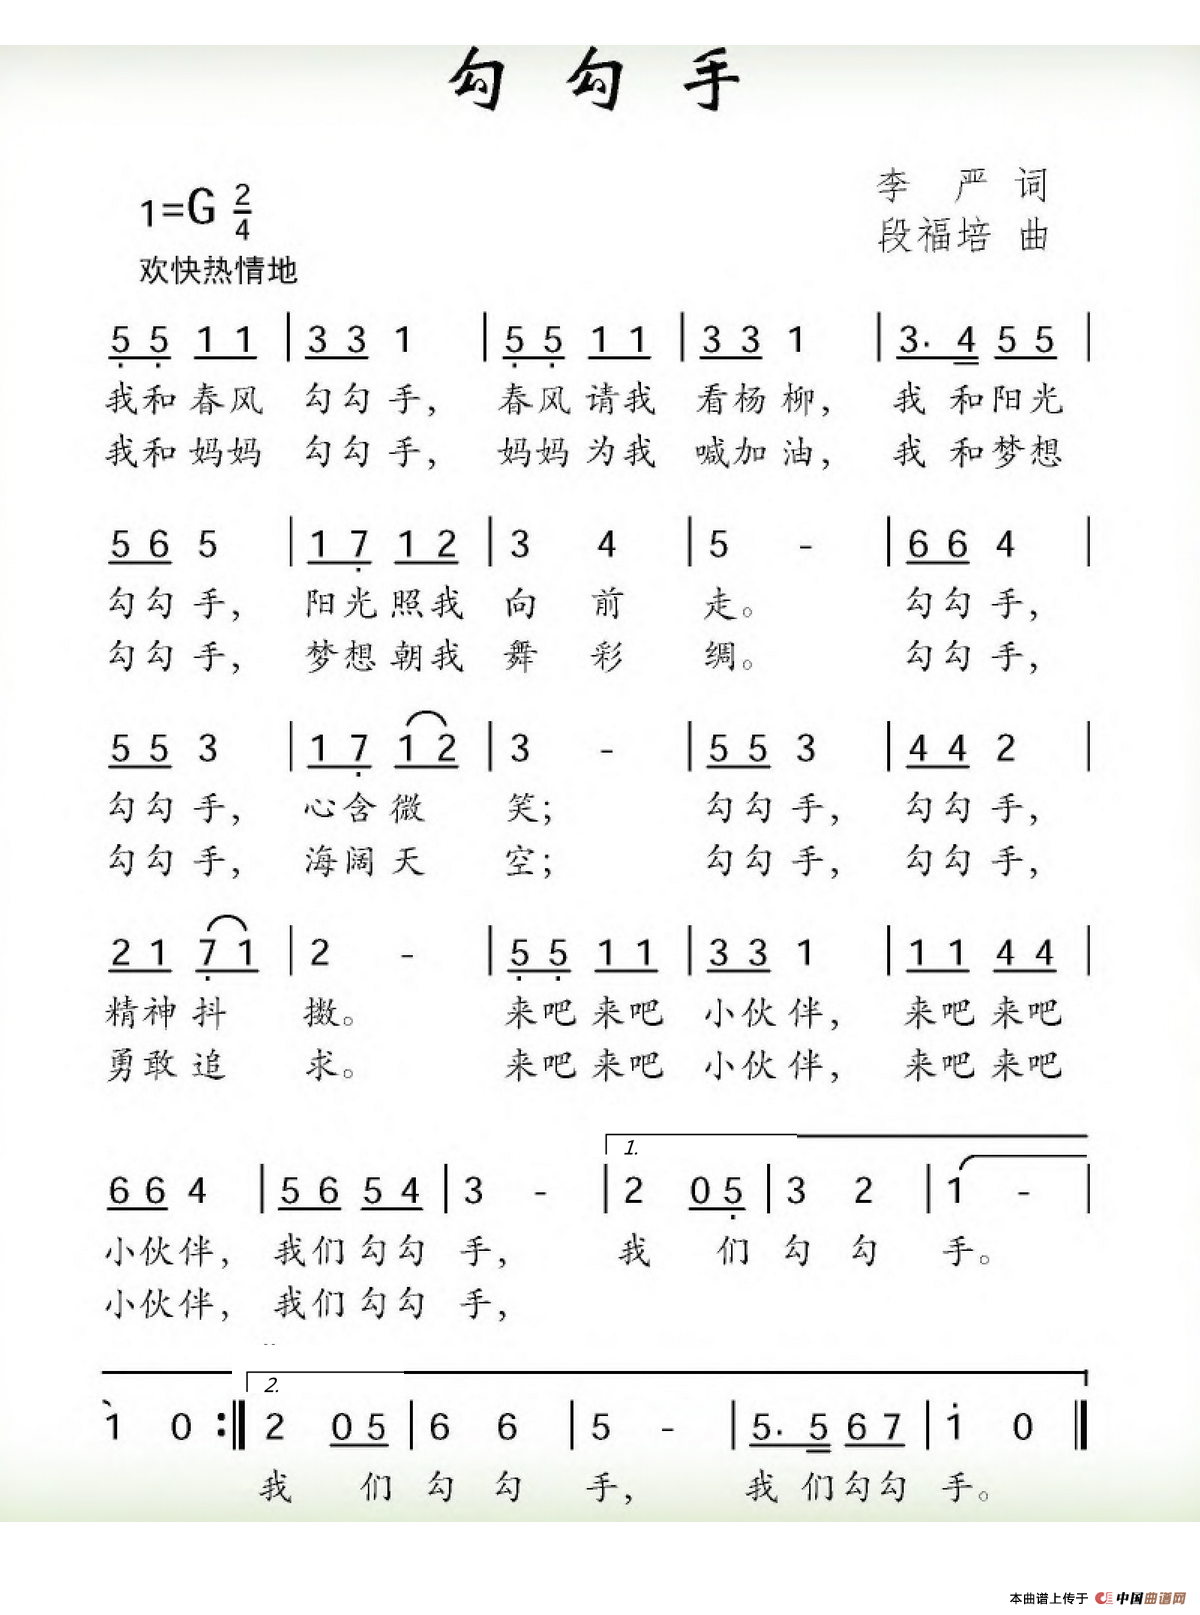 勾 勾 手
李 严 词
1=G 2/4
段福培 曲
欢快热情地
5 5 1 1 | 3 3 1 | 5 5 1 1 | 3 3 1 | 3. 4 5 5 |
我和 春风 勾勾 手, 春风 请我 看杨 柳, 我 和阳光
我和 妈妈 勾勾 手, 妈妈 为我 喊加 油, 我 和梦想
5 6 5 | 1 7 1 2 | 3 4 | 5 - | 6 6 4 |
勾勾 手, 阳光 照我 向 前 走。 勾勾 手,
勾勾 手, 梦想 朝我 舞 彩 绸。 勾勾 手,
5 5 3 | 1 7 1 2 | 3 - | 5 5 3 | 4 4 2 |
勾勾 手, 心含 微 笑; 勾勾 手, 勾勾 手,
勾勾 手, 海阔 天 空; 勾勾 手, 勾勾 手,
2 1 7 1 | 2 - | 5 5 1 1 | 3 3 1 | 1 1 4 4 |
精神 抖 擞。 来吧 来吧 小伙 伴, 来吧 来吧
勇敢 追 求。 来吧 来吧 小伙 伴, 来吧 来吧
1.
6 6 4 | 5 6 5 4 | 3 - | 2 0 5 | 3 2 | 1 - |
小伙伴, 我们 勾勾 手, 我 们 勾 勾 手。
小伙伴, 我们 勾勾 手,
2.
1 0 :‖ 2 0 5 | 6 6 | 5 - | 5. 5 6 7 | 1 0 ‖
我 们 勾 勾 手, 我 们勾勾 手。
本曲谱上传于 中国曲谱网